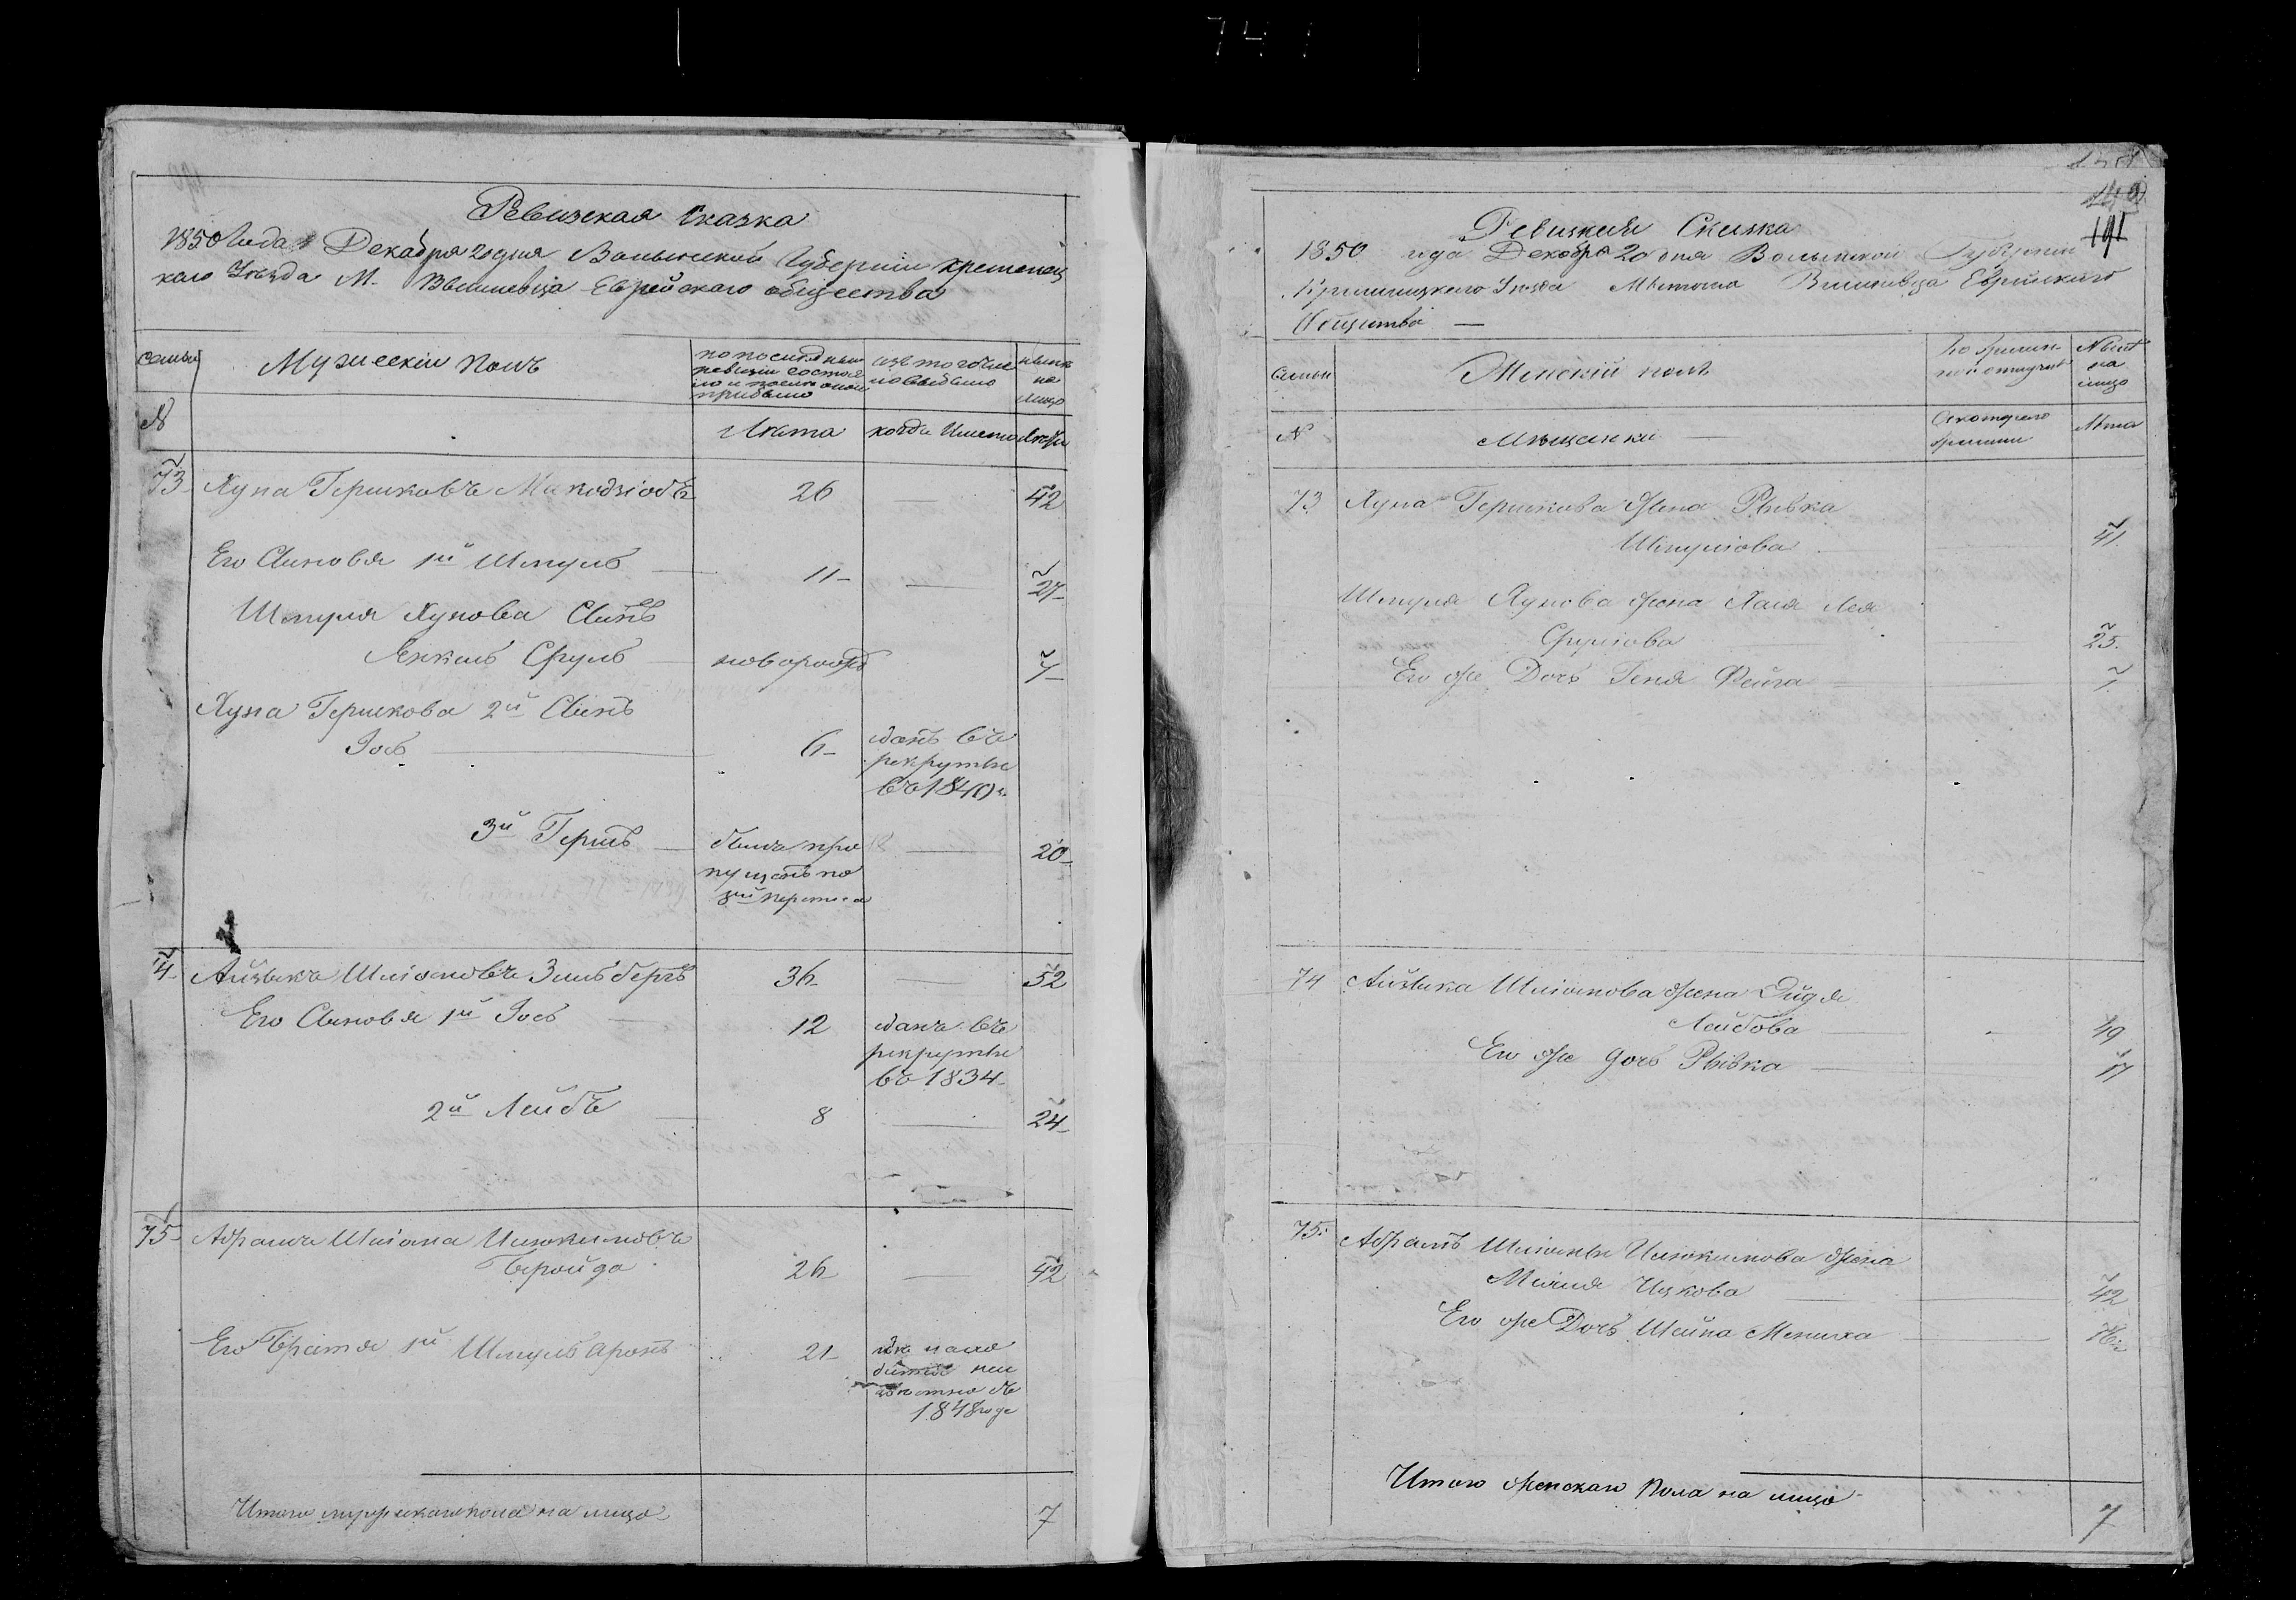 741
Ревизская Сказка
1850 Года Декабря 20 дня Волынской Губернии Кременец
каго Уезда М. Вышневца Еврейскаго общества
семьи
Мужескій полъ
по последней
ревизіи состоя
ло и после оной
прибыло
изъ того числа
выбыло
ныне
на
лицо
№
Лета
когда именно
Лета
73
Хуна Гершковъ Макодзіобъ
26
42
Его Сыновья 1й Шмуль
11
27
Шмуля Хунова Сынъ
Янкель Сруль
новорожд
7
Хуна Гершкова 2й Сынъ
Іось
6
отданъ въ
рекруты
въ 1840 г.
3й Гершъ
былъ про
пущенъ по
8й переписи
20
74
Айзыкъ Шліомовъ Зильбергъ
36
52
Его Сыновья 1й Іось
12
отданъ въ
рекруты
въ 1834
2й Лейбъ
8
24
75
Абрамъ Шліома
Беройда
26
42
Его Братья 1й Шмуль Аронъ
21
1848 года
Итого мужескаго пола на лицо
7
191
Ревизская Сказка
1850 года Декабря 20 дня Волынской Губерніи
Кременецкаго Уезда Местечка Вишневца Еврейскаго
Общества
Семьи
Женскій полъ
Во времен-
ной отлучке
Ныне
на
лицо
№
Мещанки
Съ котораго
времени
Лета
73
Хуна Гершкова Жена Рывка
Шмулiова
41
Шмуля Хунова жена Хая Лея
Срулiова
25
Его же Дочь Геня Фейга
1
74
Айзыка Шліомова жена Эйдя
Лейбова
49
Его же дочь Рывка
17
75
Абрамъ Шліомы жена
Ицкова
42
Его же Дочь Шейна Мениха
Итого женскаго пола на лицо
7